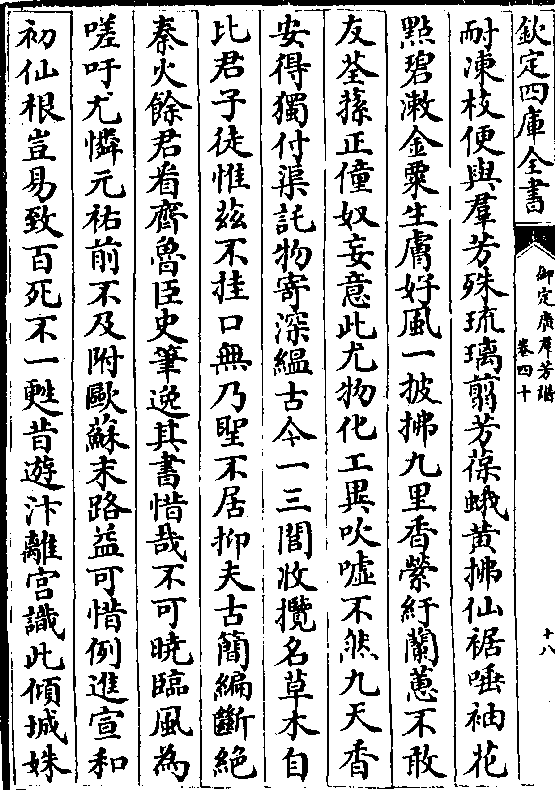 欽定四庫全書
御定廣羣芳譜
卷四十
十八
耐凍枝便與羣芳殊琉璃剪芳葆蛾黄拂仙裾唾袖花
點碧漱金粟生膚好風一披拂九里香縈紆蘭蕙不敢
友荃蓀正僮奴妄意此尤物化工異吹嘘不然九天香
安得獨付渠託物寄深緼古今一三閭收攬名草木自
比君子徒惟兹不挂口無乃聖不居抑夫古簡編斷絶
秦火餘君看齊魯臣史筆逸其書惜哉不可曉臨風為
嗟吁尤憐元祐前不及附歐蘇末路益可惜例進宣和
初仙根豈易致百死不一甦昔遊汴離宫識此傾城姝